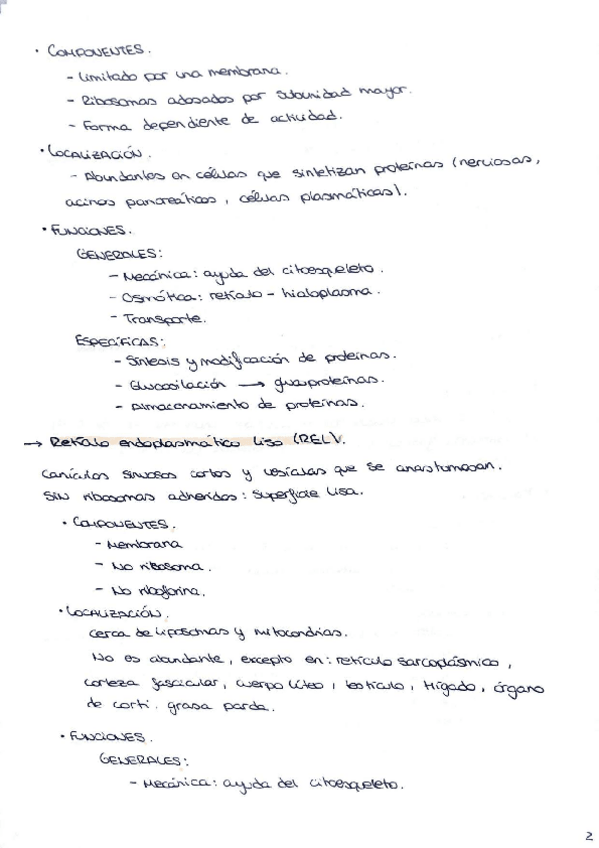 · COMPONENTES.
- Limitado por una membrana.
- Ribosomas adosados por subunidad mayor.
- Forma dependiente de actividad.
· LOCALIZACIÓN.
- Abundantes en células que sintetizan proteínas (nerviosas,
acinos pancreáticos, células plasmáticas).
· FUNCIONES.
GENERALES:
- Mecánica: ayuda del citoesqueleto.
- Osmótica: retículo - hialoplasma.
- Transporte.
ESPECÍFICAS:
- Síntesis y modificación de proteínas.
- Glucosilación → glucoproteínas.
- Almacenamiento de proteínas.
→ Retículo endoplasmático liso (REL).
Canículos sinuosos cortos y vesículas que se anastomosan.
Sin ribosomas adheridos: superficie lisa.
· COMPONENTES.
- Membrana
- No ribosoma.
- No riboforina.
· LOCALIZACIÓN.
Cerca de liposomas y mitocondrias.
No es abundante, excepto en: retículo sarcoplásmico,
corteza fascicular, cuerpo lúteo, testículo, hígado, órgano
de corti. grasa parda.
· FUNCIONES.
GENERALES:
- Mecánica: ayuda del citoesqueleto.
2